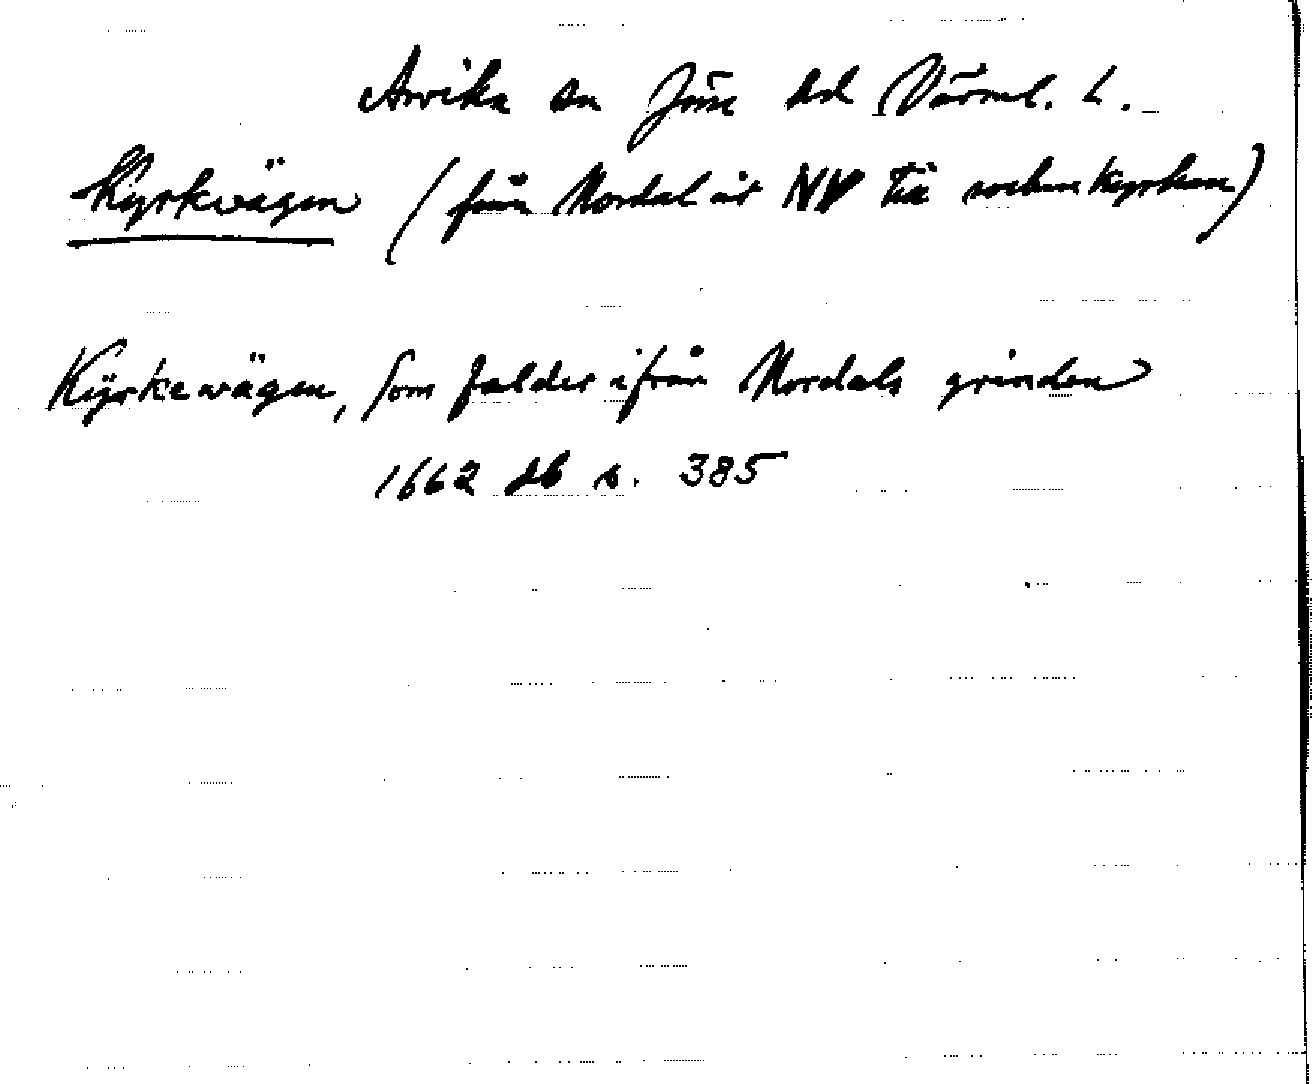 Arvika sn Jösse hd Värml. L.
Kyrkvägen (från Mordal åt NV till sockenkyrkan)
Kÿrkewägen, som falder ifrån Mordals grinden
1662 db s. 385